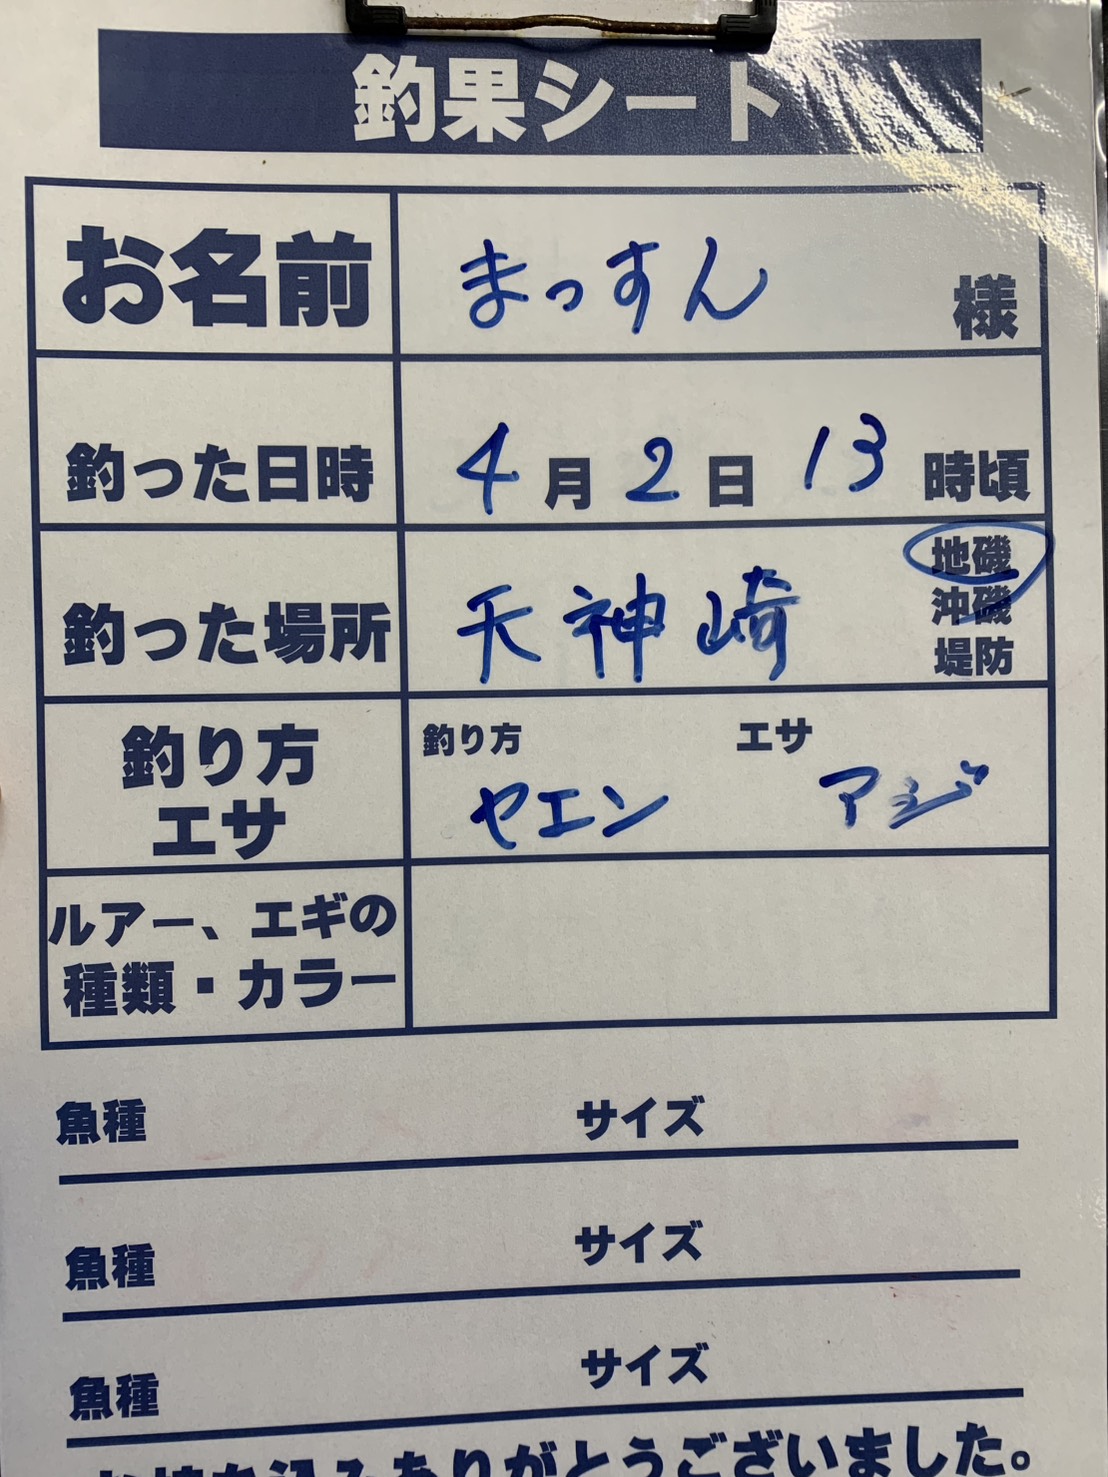 釣果シート
お名前 まっすん 様
釣った日時 4月2日 13時頃
地磯
釣った場所 天神崎 沖磯
堤防
釣り方 エサ
釣り方
エサ ヤエン アジ
ルアー、エギの
種類・カラー
魚種 サイズ
魚種 サイズ
魚種 サイズ
お持ち込みありがとうございました。